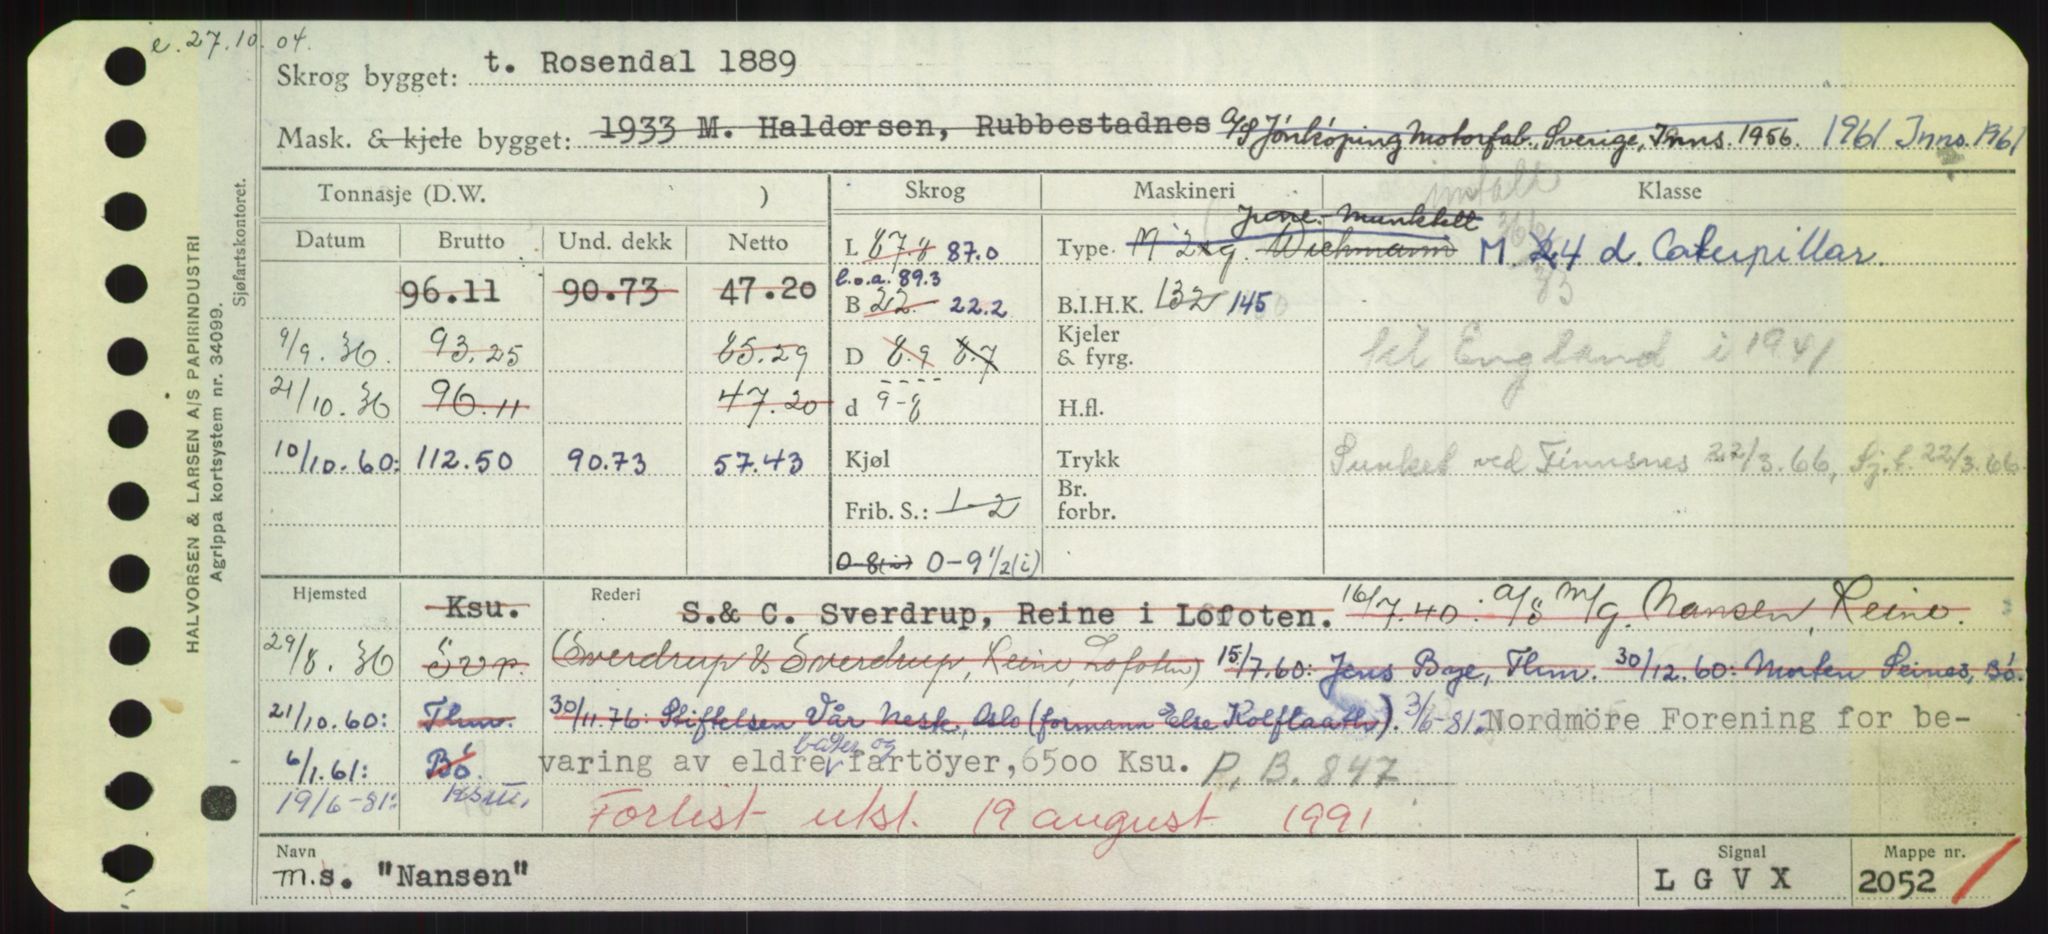 e. 27.10.04.
Skrog bygget: t. Rosendal 1889
Mask. & kjele bygget: 1933 M. Haldorsen, Rubbestadnes A/S Jönköping Motorfab., Sverige, Inns. 1956. 1961 Inns. 1961
Tonnasje (D.W. ) Skrog Maskineri Klasse
Datum Brutto Und. dekk Netto L 87.8 87.0 Type. M 2 g. Wichmann June-Munktell M 4 d. Caterpillar.
l.o.a. 89.3
96.11 90.73 47.20 B 22. 22.2 B.I.H.K. 132 145
9/9.36. 93.25 85.29 D 8.9 8.7 Kjeler & fyrg. til England i 1941
21/10.36 96.11 47.20 d 9-8 H.fl.
10/10.60: 112.50 90.73 57.43 Kjøl Trykk Sunket ved Finnsnes 22/3.66, Sj.f. 22/3.66.
Frib. S.: 1-2 Br. forbr.
0-8(i) 0-9 1/2(i)
Hjemsted Ksu. Rederi S.& C. Sverdrup, Reine i Lofoten. 16/7.40: A/S M/g. Nansen, Reine.
29/8.36 Svr. (Sverdrup & Sverdrup, Reine, Lofoten) 15/7.60: Jens Boge, Thm. 30/12.60: Morten Seines, Bö.
21/10.60: Thm. 30/11.76: Stiftelsen Vår Nesk, Oslo (formann Else Kolflaath). 3/6-81: Nordmöre Forening for be-
6/1.61: Bö. varing av eldre båter og fartöyer, 6500 Ksu. P.B. 847
19/6-81: Ksu. Forlist utsl. 19 august 1991
Navn Signal Mappe nr.
m.s. "Nansen" L G V X 2052
HALVORSEN & LARSEN A/S PAPIRINDUSTRI
Agrippa kortsystem nr. 34099.
Sjøfartskontoret.